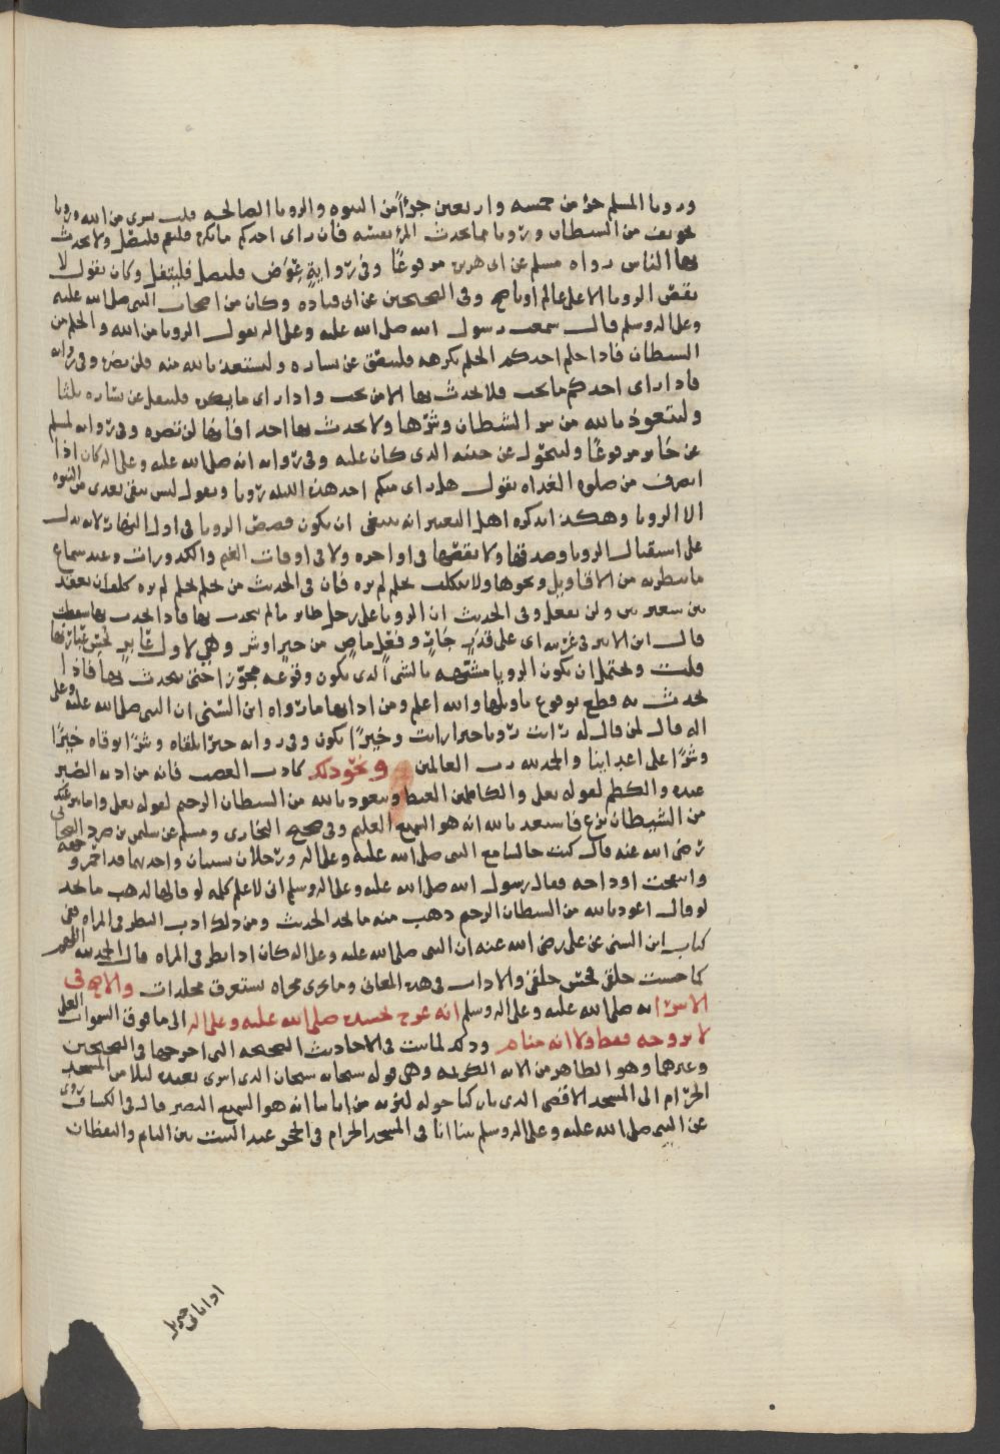 ورويا المسلم جزء من خمسه واربعين جزءًا من النبوه والرويا الصالحه قلت بشرى من الله ورويا
تخويف من الشيطان ورويا مما يحدث المرء نفسه فان راى احدكم ما يكره فليقم فليصل ولا يحدث
بها الناس رواه مسلم عن ابي هريره مرفوعًا وفي رواية عِوَض فليصل فليتفل وكان يقول لا
تقص الرويا الا على عالم او ناصح وفي الصحيحين عن ابي قتاده وكان من اصحاب النبي صلى الله عليه
وعلى اله وسلم قال سمعت رسول الله صلى الله عليه وعلى اله يقول الرويا من الله والحلم من
الشيطان فاذا حلم احدكم الحلم يكرهه فليبصق عن يساره وليستعذ بالله منه فلن يضره وفي روايه
فاذا راى احدكم ما يحب فلا يحدث بها الا من يحب واذا راى ما يكره فليتفل عن يساره ثلثا
وليتعوذ بالله من شر الشيطان وشرّها ولا يحدث بها احدا فانها لن تضره وفي روايه لمسلم
عن جابر مرفوعًا وليتحوّل عن جنبه الذي كان عليه وفي روايه انه صلى الله عليه وعلى اله كان اذا
انصرف من صلوه الغداه يقول هل راى منكم احد هذه الليله رويا ويقول ليس يبقى بعدي من النبوه
الا الرويا وهكذا يذكره اهل التعبير انه ينبغي ان يكون قصص الرويا في اول النهار لانه يدل
على استقبال الرويا وصدقها ولا يقصّها في اواخره ولا في اوقات الغيم والكدورات وعند سماع
ما يتطير به من الاقاويل ونحوها ولا يتكلف حلم لم يره فان في الحديث من حلم حلم لم يره كلف ان يعقد
بين شعيرتين ولن يفعل وفي الحديث ان الرويا على رجل طاير ما لم يحدث بها فاذا تحدث بها سقطت
قال ابن الاثير في غريبه اى على قدَرٍ جَارٍ وقضَاءٍ ماضٍ من خير او شر وهي لاول عَابرٍ يُحسن عبارتها
قلت ويحتمل ان تكون الرويا مشبّهه بالشى الذي يكون وقوعه مجوّزا حتى يحدث بها فاذا
تحدث به قطع بوقوع تاويلها والله اعلم ومن ادابها ما رواه ابن السّني ان النبي صلى الله عليه وعلى
اله قال لمن قال له رايت رويا خيرا رايت وخيرًا يكون وفي روايه خيرًا تلقاه وشرّا توقاه خيرًا لنا
وشرّا على اعدائنا والحمد لله رب العالمين ونحو ذلك كادب الغضب فانه من ادبه الصّبر
عنده والكظم لقوله تعلى والكاظمين الغيظ وتعوذ بالله من الشيطان الرجيم لقوله تعلى واما ينزغنك
من الشيطان نزغ فاستعذ بالله انه هو السميع العليم وفي صحيح البخاري ومسلم عن سليمن بن صرد الصحابي
رضى الله عنه قال كنت جالسا مع النبي صلى الله عليه وعلى اله ورجلان يستبان واحدهما قد احمر وجهه
وانتفخت اوداجه فقال رسول الله صلى الله عليه وعلى اله وسلم اني لاعلم كلمه لو قالها لذهب ما يجد
لو قال اعوذ بالله من الشيطان الرجيم ذهب منه ما يجد الحديث ومن ذلك ادب النظر في المراه ففي
كتاب ابن السني عن علي رضى الله عنه ان النبي صلى الله عليه وعلى اله كان اذا نظر في المراه قال الحمد لله اللهم
كما حسنت خلقي فحسّن خلقي والاداب في هذه المعاني وما يجرى مجراه يستغرق مجلدات والاصح في
الاسرا به صلى الله عليه وعلى اله وسلم انه عرج بجسده صلى الله عليه وعلى اله الى ما فوق السموات العلى
لا بروحه فقط ولا انه منام وذلك لما ثبت في الاحاديث الصحيحه التي اخرجها في الصحيحين
وغيرها وهو الظاهر من الايه الكريمه وهي قوله سبحانه سبحان الذي اسرى بعبده ليلا من المسجد
الحرام الى المسجد الاقصى الذي باركنا حوله لنريه من اياتنا انه هو السميع البصير قال في الكشاف روى
عن النبي صلى الله عليه وعلى اله وسلم بينا انا في المسجد الحرام في الحجر عند البيت بين النايم واليقظان
اذ اتاني جبريل